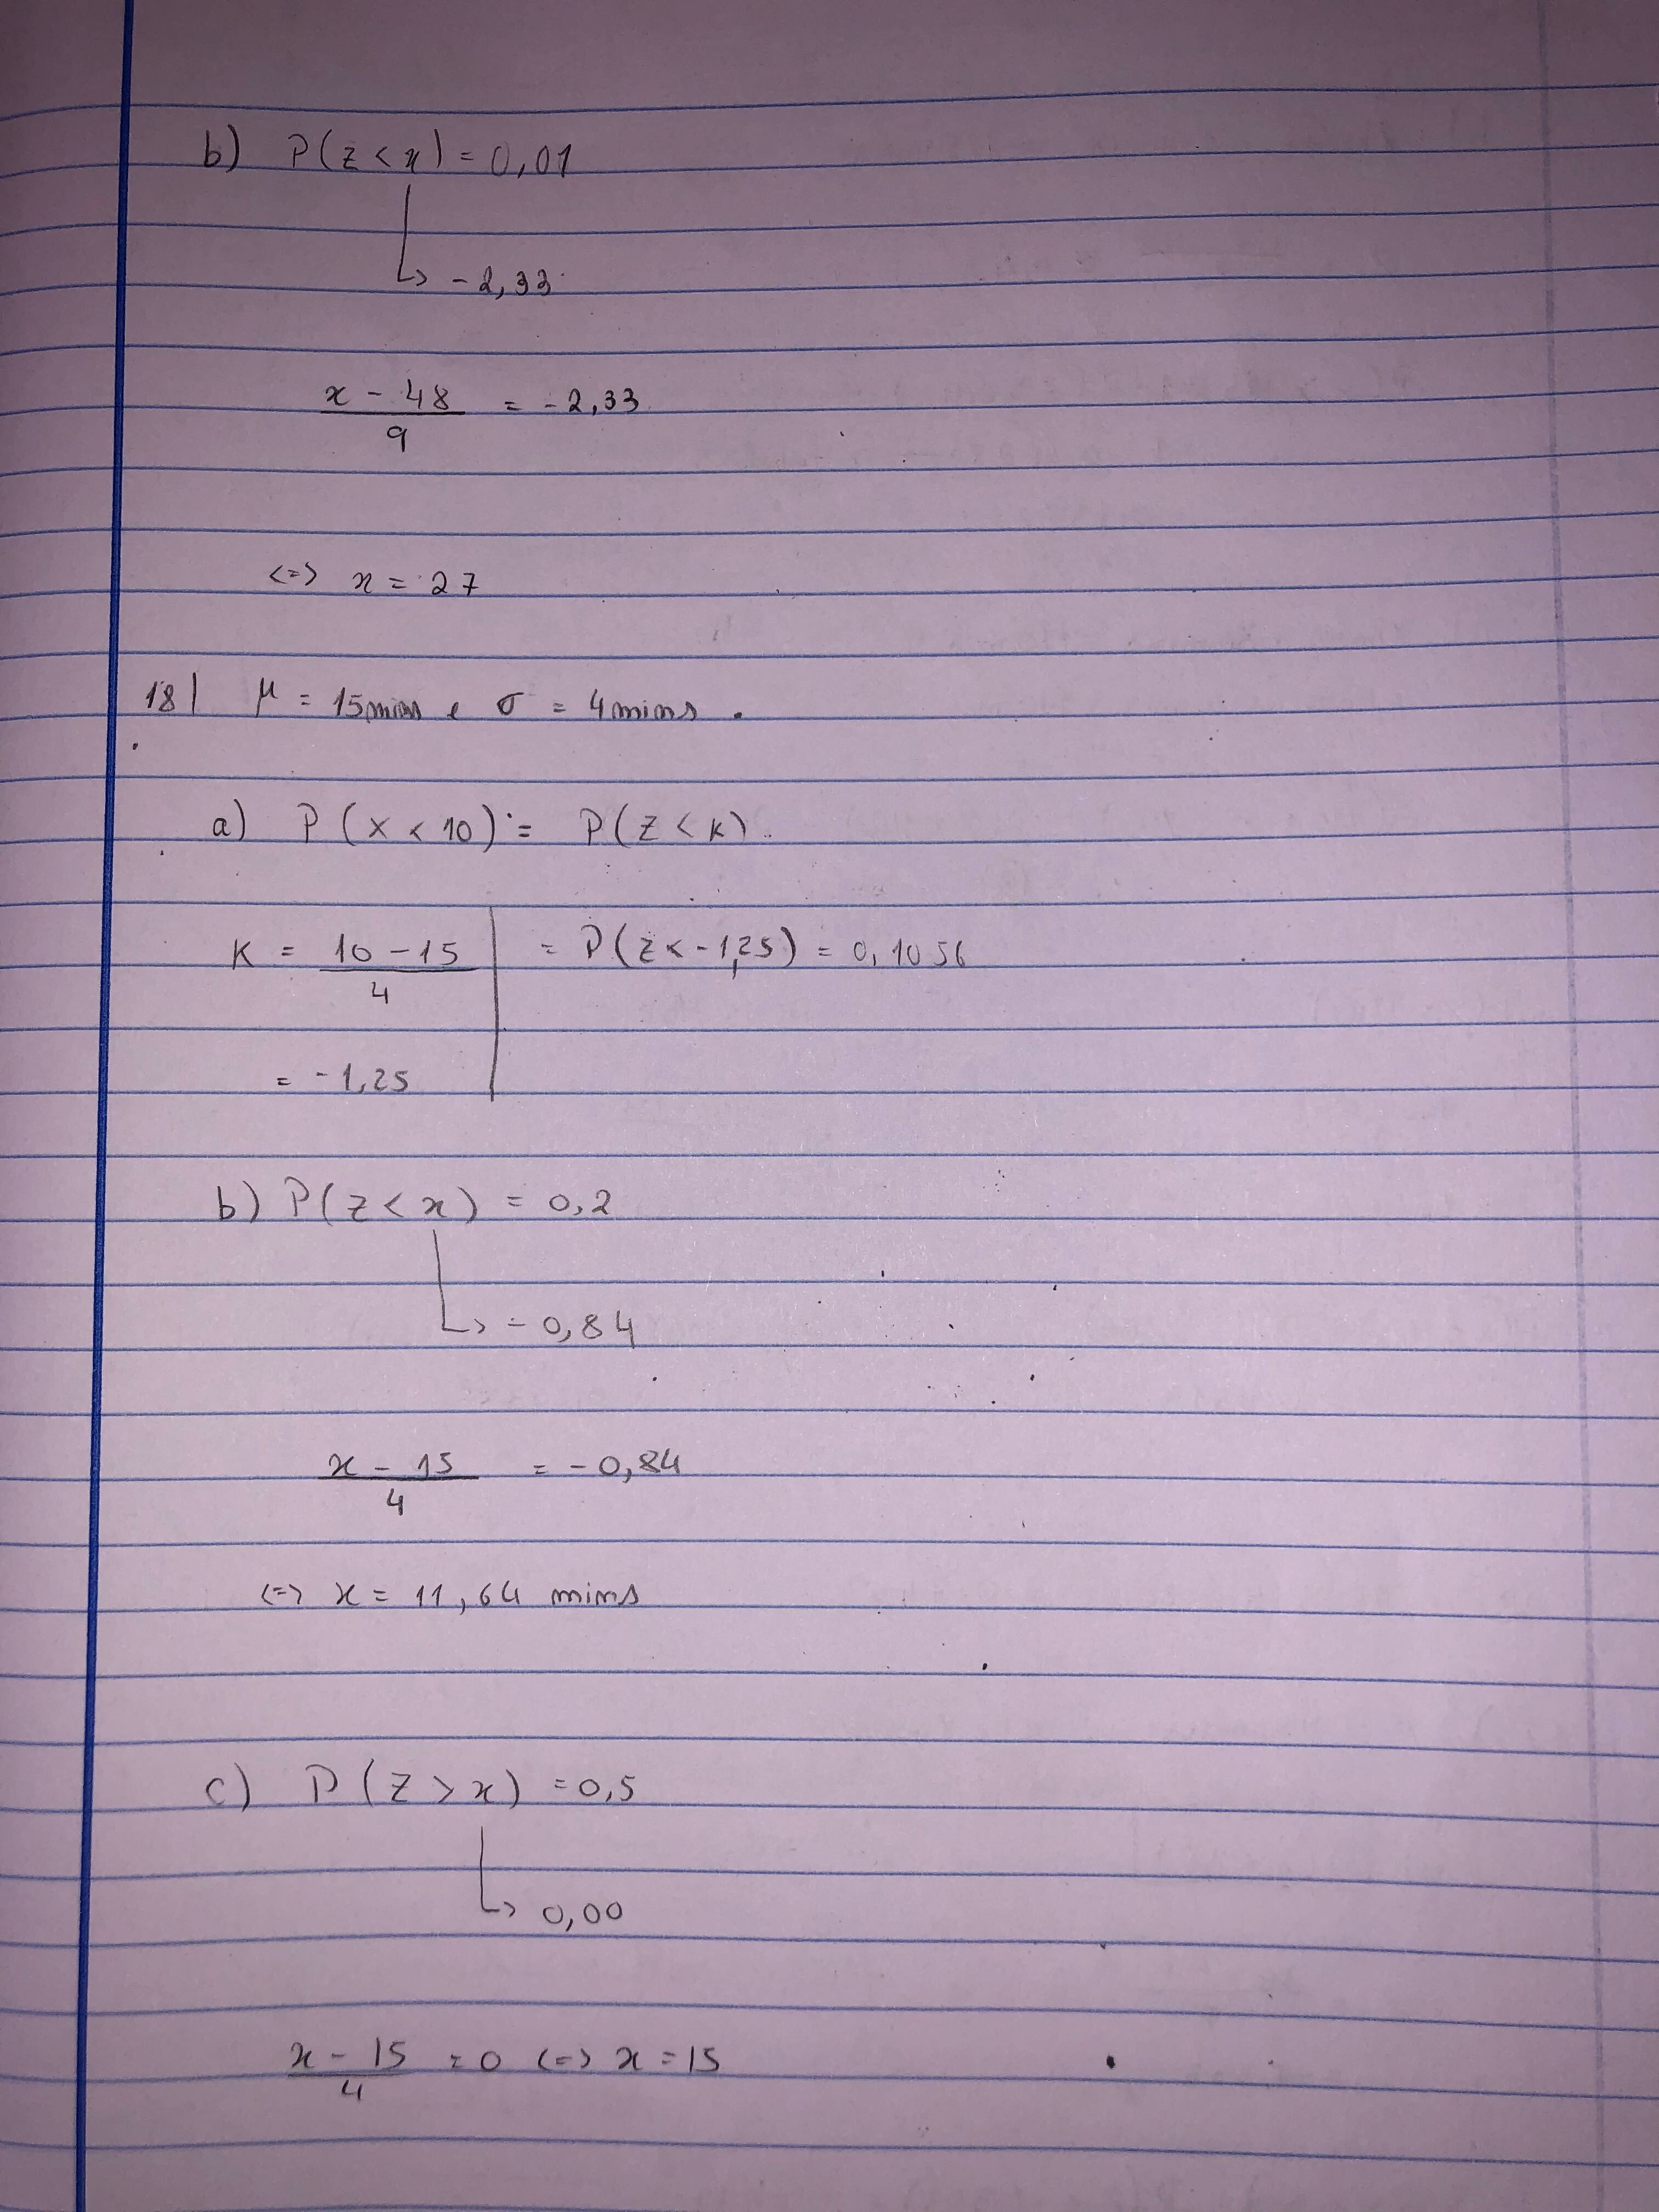 b) P(z < x) = 0,01
↳ - 2,33
x - 48 / 9 = - 2,33
<=> x = 27
18| μ = 15 mins e σ = 4 mins .
a) P(X < 10) = P(Z < K)
K = 10 - 15 / 4 = P(Z < -1,25) = 0,1056
= -1,25
b) P(Z < x) = 0,2
↳ - 0,84
x - 15 / 4 = - 0,84
<=> x = 11,64 mins
c) P(Z > x) = 0,5
↳ 0,00
x - 15 / 4 = 0 <=> x = 15